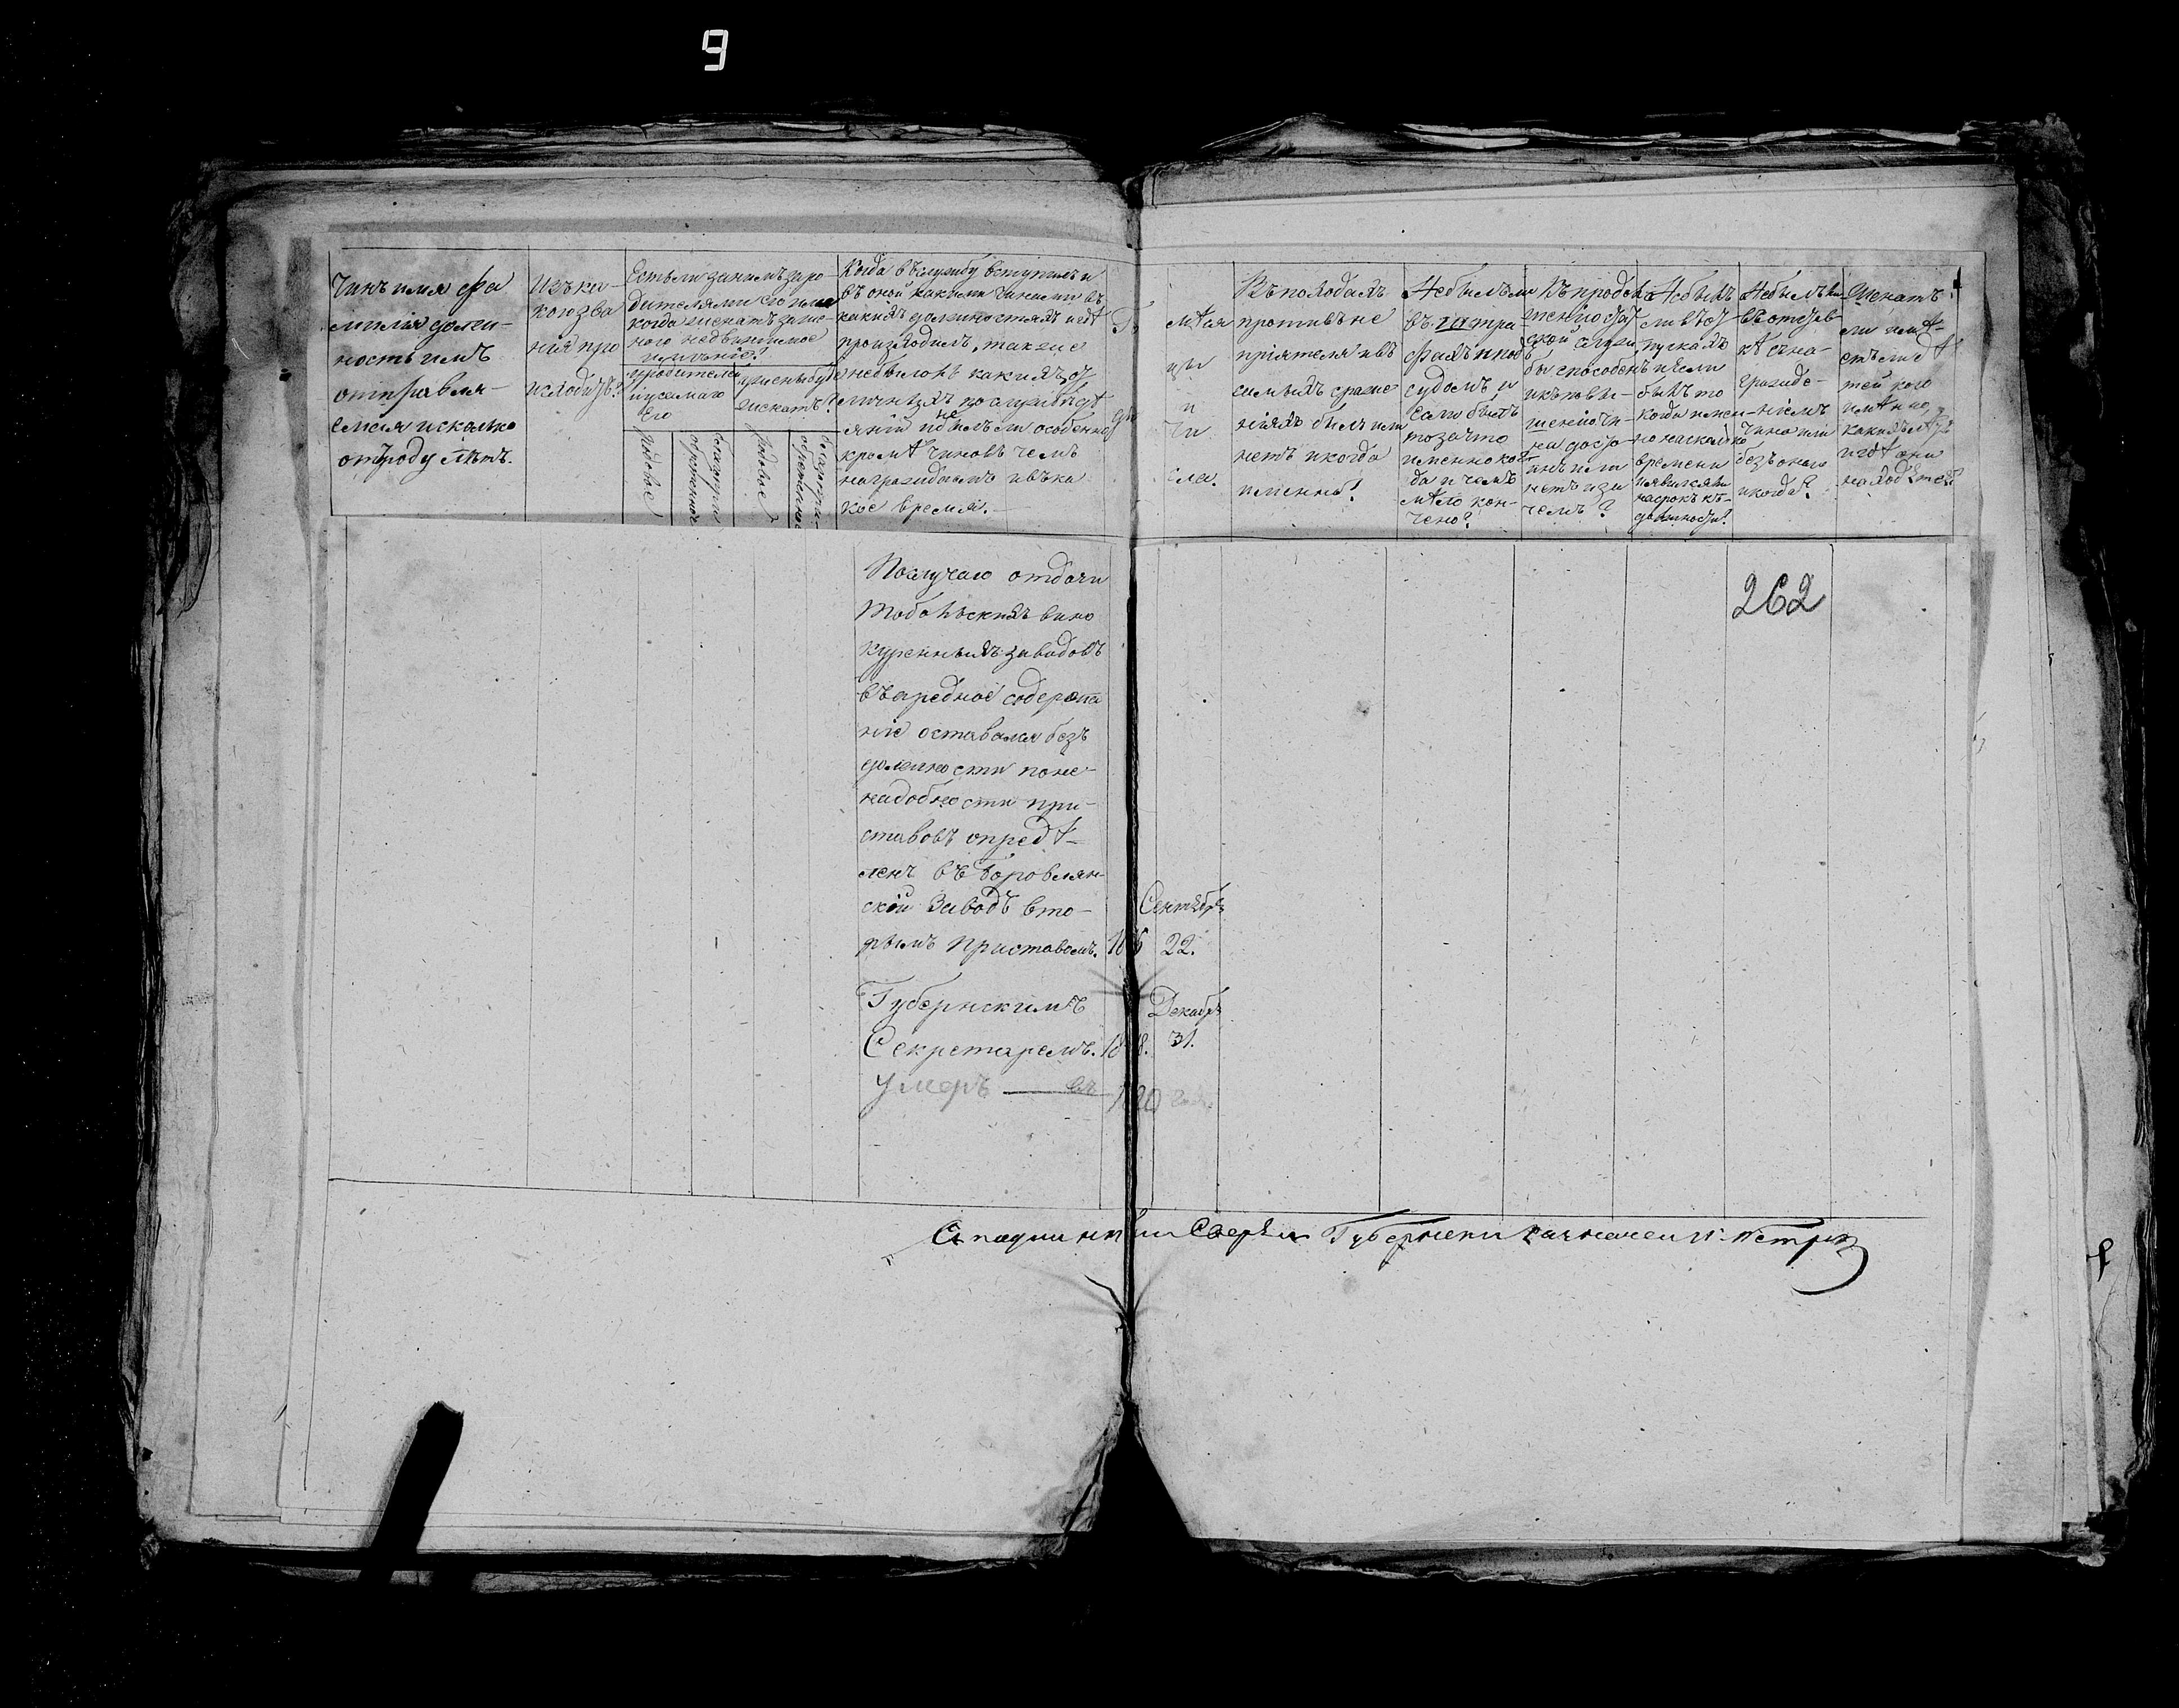 9
Чинъ имя фа
милія долж-
ность имъ
отправля-
емая исколько
отъроду лѣтъ.
Изъка-
когозва
нія про
исходитъ?
Естьли занимъ заро-
дителями его или
когда женатъ заже-
ною недвижимое
имѣніе?
уродителей
искомаго
его
уженыбуде
женатъ?
родовое
родовое
Когда въслужбу вступилъ и
въ оной какими чинами въ
какихъ должностяхъ и гдѣ
произходилъ, также
небылолиъ какихъ от
личныхъ по службѣ дѣ
яній и не былъ ли особенно
кромѣ чиновъ чемъ
награжденъ ивъка
кое время.
мѣся
цы
и
чи
сла.
Въ походахъ
противъ не
пріятеля ивъ
самыхъ сраже
ніяхъ былъ или
нетъ икогда
именно?
Небылъли
въ штра
фахъ и подъ
судомъ и
если былъ
то зачто
именно ког
да и чемъ
дѣло кон-
чено?
Къ продол
женію стат
ской службы
способенъ
икъ повы-
шенію чи-
на досто-
инъ или
нетъ иза
чемъ?
Небылъ
ли въ от
пускахъ
и если
былъ то
когда имен-
но насколько
времени
и явился ли
на срокъ къ
должности?
Небылъ ли
въ отстав-
кѣ сна-
гражде-
ніемъ
чина или
безъ онаго
икогда?
Женатъ
ли имѣ-
етъ ли дѣ
тей кого
имянно,
какихълѣтъ
игдѣ они
находятся?
Послучаю отдачи
Тобольскихъ вино
куренныхъ заводовъ
въарендное содержа
ніе оставался безъ
должности поне-
надобности при-
ставовъ опредѣ-
ленъ въ Боровлян-
ской Заводъ вто-
рымъ приставомъ. Сентября 22.
Губернскимъ
Секретаремъ. Декабря 31.
Умеръ въ года
262
Губернски казначеи Петръ